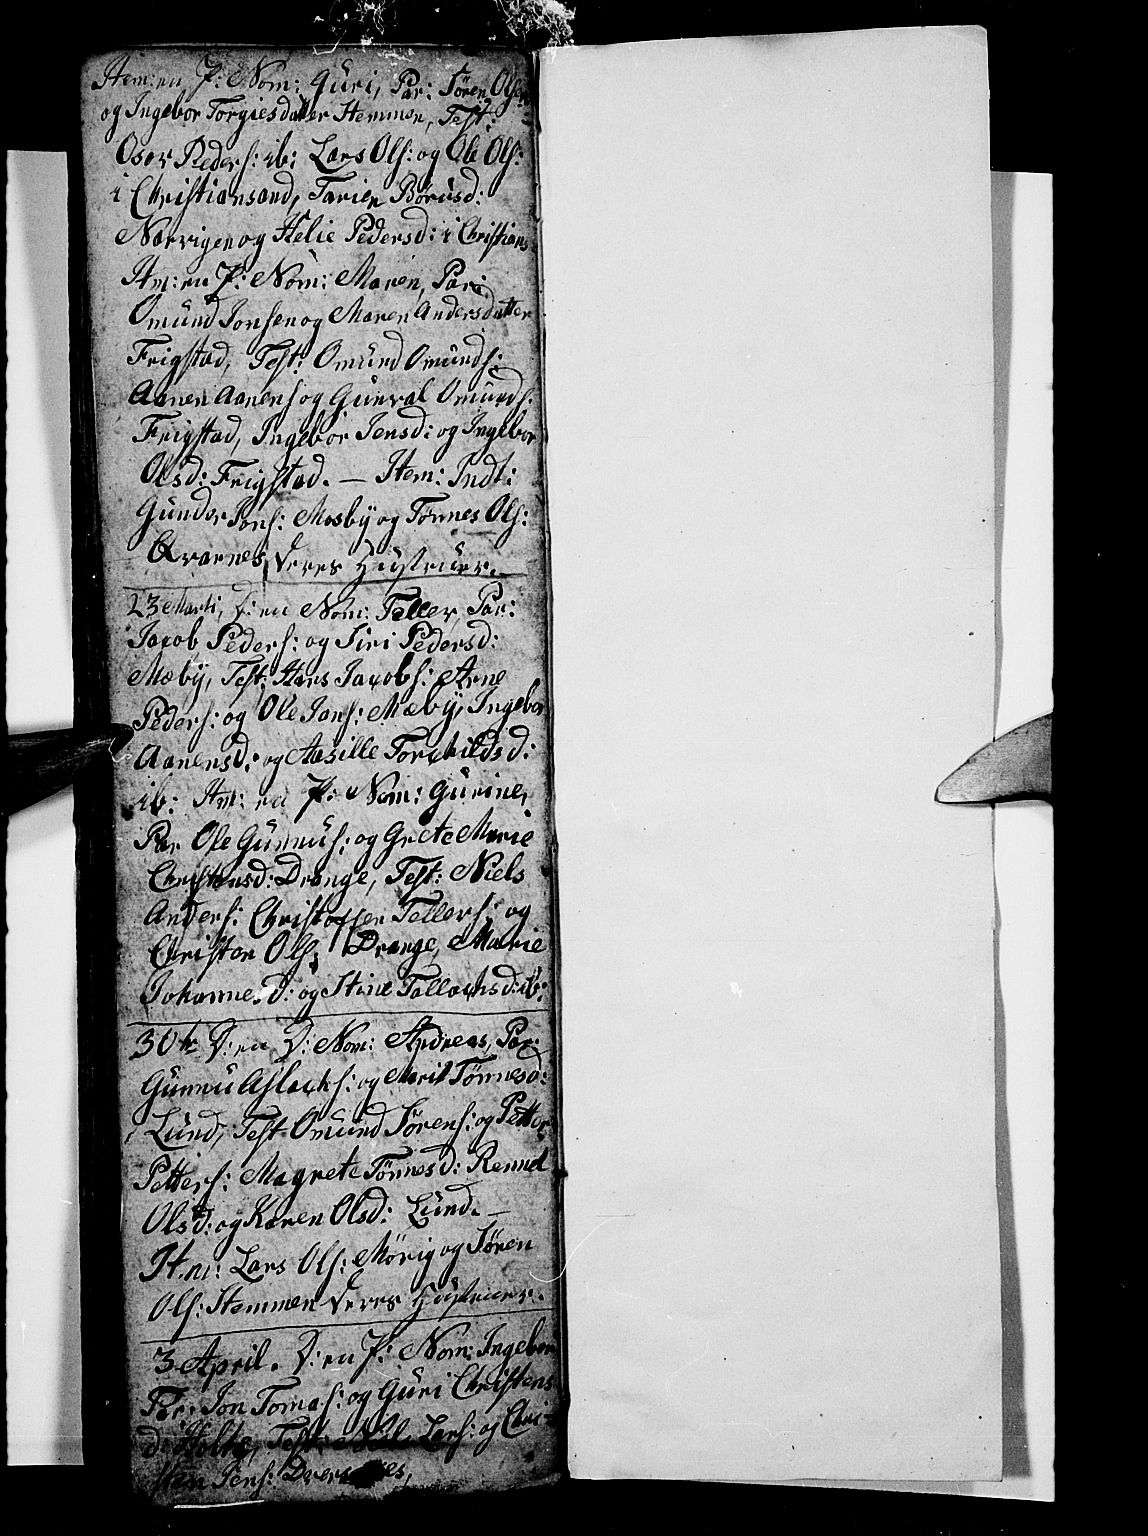 Item: en P: Nom: Guri, Par: Søren Olsen
og Ingebor Torgiesdatter Stemmen, Test:
Osor Peders: ib: Lars Ols: og Ole Ols:
i Christiansand, Tarien Børusd:
Narvigen og Helie Pedersd: i Christians
Itm: en P: Nom: Maren, Par:
Omund Jonsen og Maren Andersdatter
Frigstad, Test: Omund Omunds:
Aanen Aanens og Gunval Omunds:
Frigstad, Ingebor Jensd: og Ingebor
Olsd: Frigstad. — Item: Indt:
Gundor Jons: Mosby og Tønnes Ols:
Qvarnes, Deres Hustruer. —
23 Marti, D: en Nom: Teller, Par:
Jacob Peders: og Siri Pedersd:
Mæby, Test: Hans Jacobs: Arne
Peders: og Ole Jons: Mæby, Ingebor
Aanensd: og Aasille Torchildsd:
ib: Itm: en P: Nom: Gurine,
Par Ole Gunnus: og Grete Marie
Christensd: Drange, Test: Niels
Anders: Christoffer Tellers: og
Christen Ols: Drange, Marie
Johannesd: og Stine Tallachsd: ib:
30te D: en D: Nom: Andreas, Par:
Gunnu Aslachs: og Marit Tønnesd:
Lund, Test Omund Sørens: og Petter
Petters: Magrete Tønnesd: Rennel
Olsd: og Karen Olsd: Lund. —
Itm: Lars Ols: Mørig og Søren
Ols: Stemmen Deres Hustruer.
3 April. D: en P: Nom: Ingebor
Par: Jon Tomas: og Guri Christens
d: Holte, Test: Lars: og Chri-
sten Jens: